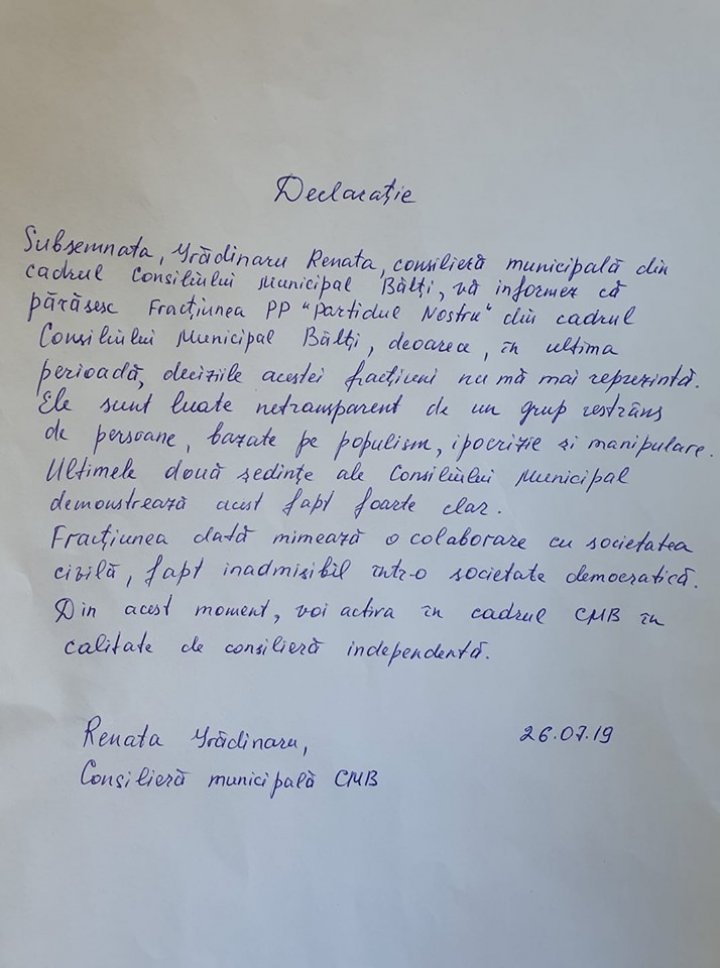 Declarație
Subsemnata, Grădinaru Renata, consilieră municipală din
cadrul Consiliului Municipal Bălți, vă informez că
părăsesc Fracțiunea PP "Partidul Nostru" din cadrul
Consiliului Municipal Bălți, deoarea, în ultima
perioadă, deciziile acestei fracțiuni nu mă mai reprezintă.
Ele sunt luate netransparent de un grup restrâns
de persoane, bazate pe populism, ipocrizie și manipulare.
Ultimele două ședințe ale Consiliului Municipal
demonstrează acest fapt foarte clar.
Fracțiunea dată mimează o colaborare cu societatea
civilă, fapt inadmisibil într-o societate democratică.
Din acest moment, voi activa în cadrul CMB în
calitate de consilieră independentă.
Renata Grădinaru, 26.07.19
Consilieră municipală CMB